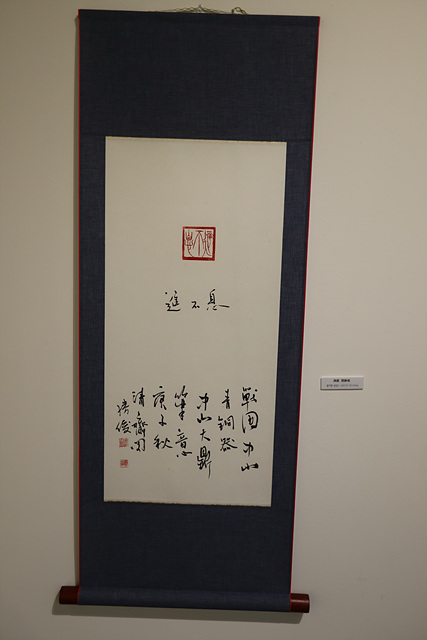 進不息
戰国中山
青銅器
中山大鼎
筆意
庚子秋
清齋
俊